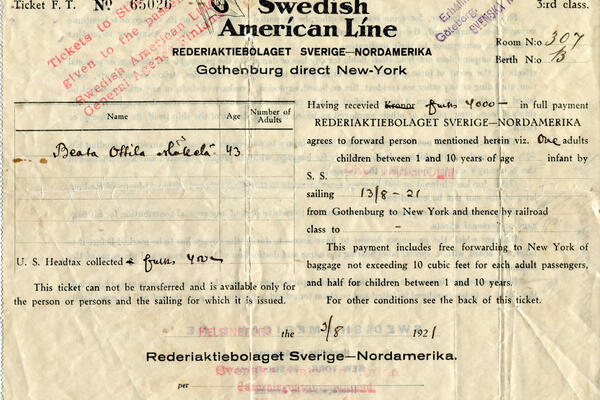 Ticket F. T. No 65020
Swedish
American Line
3:rd class.
Tickets to
given to the
Swedish American Line
General Agency Finland
Göteborg
SVENSKA
Room N:o 307
Berth N:o B
REDERIAKTIEBOLAGET SVERIGE—NORDAMERIKA
Gothenburg direct New-York
Name Age Number of Adults
Beata Ottila Mäkelä 43
U. S. Headtax collected
This ticket can not be transferred and is available only for
the person or persons and the sailing for which it is issued.
Having recevied Kronor 4000— in full payment
REDERIAKTIEBOLAGET SVERIGE—NORDAMERIKA
agrees to forward person mentioned herein viz. One adults
children between 1 and 10 years of age infant by
S. S.
sailing 13/8-21
from Gothenburg to New York and thence by railroad
class to -
This payment includes free forwarding to New York of
baggage not exceeding 10 cubic feet for each adult passengers,
and half for children between 1 and 10 years.
For other conditions see the back of this ticket.
the 3/8 1921
Rederiaktiebolaget Sverige—Nordamerika.
per